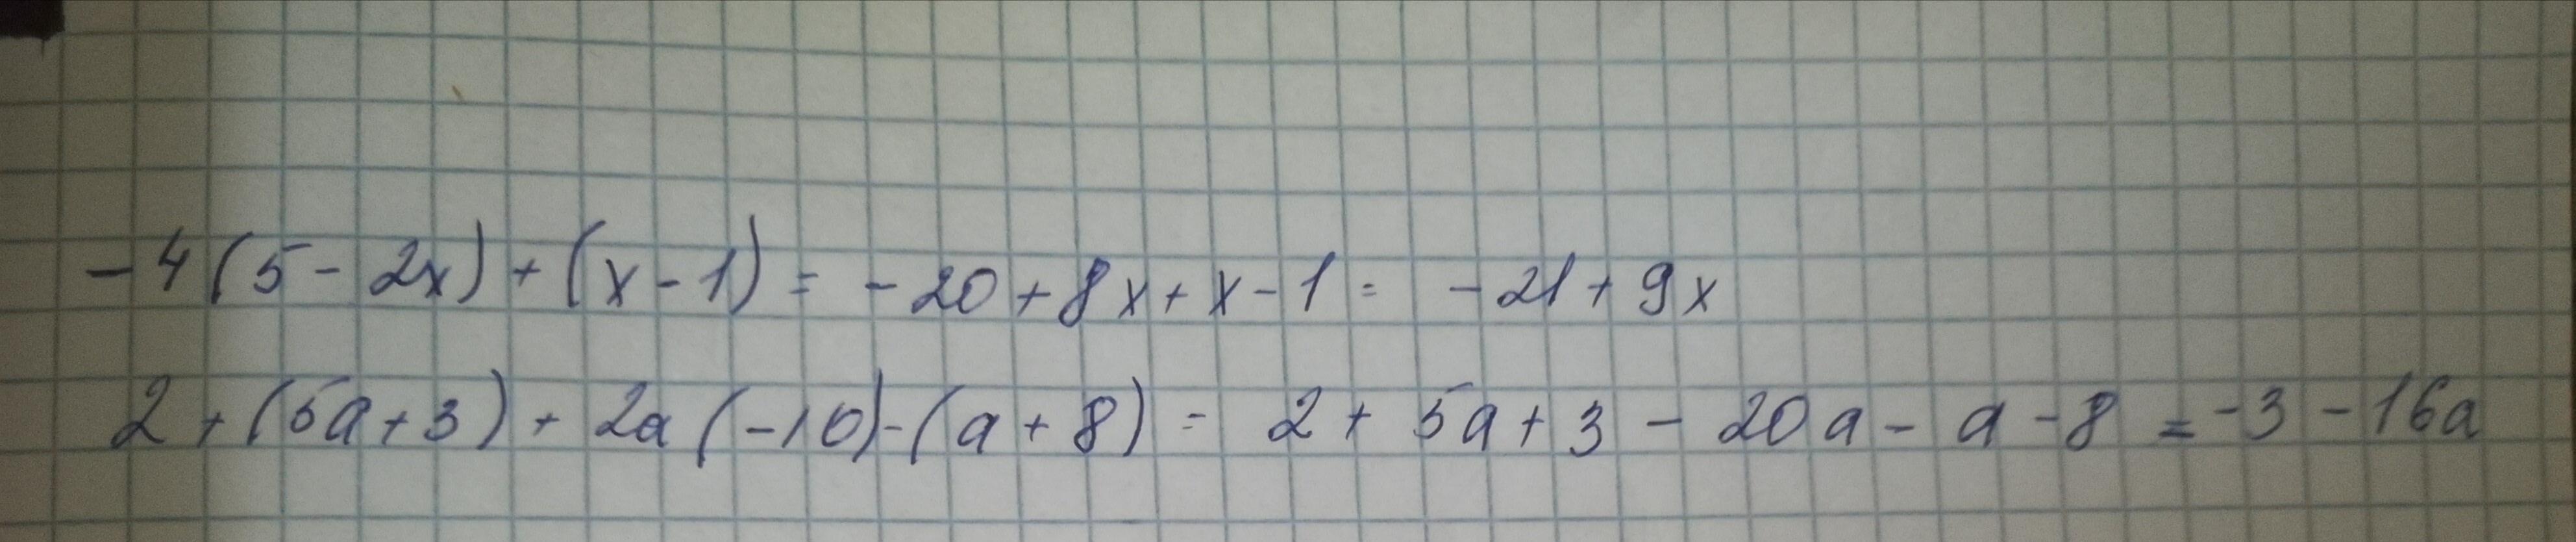 -4(5-2x)+(x-1)= -20+8x+x-1= -21+9x
2+(5a+3)+2a(-10)-(a+8)= 2+5a+3-20a-a-8=-3-16a